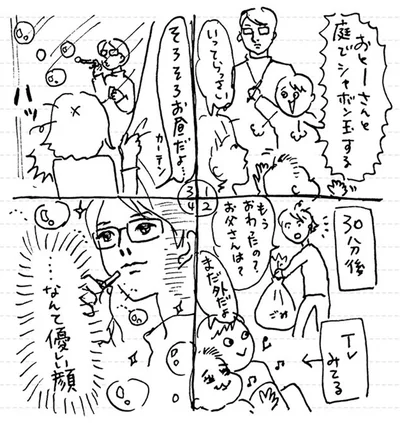 おとーさんと
庭でシャボン玉する
いってらっさい
1
30分後
もう
おわったの?
お父さんは?
ごみ
まだ外だよ
TV
みてる
2
そろそろお昼だよ
カーテン
ハッ
3
…なんて優しい顔
4